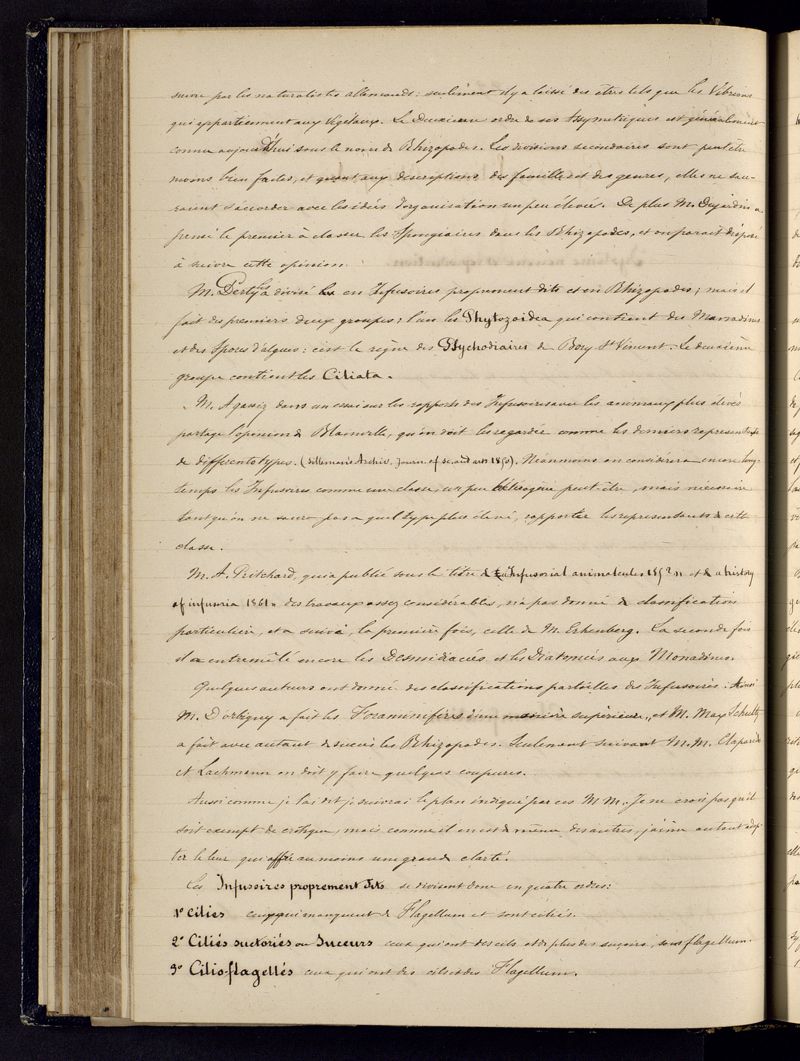 suivie par les naturalistes allemands: seulement il y a laissé des êtres tels que les Vibrions
qui appartiennent aux végétaux. Le Deuxième ordre de ses Asymétriques est généralement
connu aujourd'hui sous le nom de Rhizopodes. Les divisions secondaires sont peut être
moins bien faites, et quant aux descriptions des familles et des genres, elles ne sau-
raient s'accorder avec les idées d'organisation un peu élevée. De plus M. Dujardin a
pensé le premier à classer les Spongiaires dans les Rhizopodes, et on paraît disposé
à suivre cette opinion.
M. Perty les a divisé en Infusoires proprement dits et en Rhizopodes; mais il
fait des premiers deux groupes; l'un les Phytozoidea qui contient des Monadines
et des Spores d'algues: c'est le règne des Psychodiaires de Bory St Vincent. Le deuxième
groupe contient les Ciliata.
M. Agassiz dans un essai sur les rapports des Infusoires avec les animaux plus élevés
partage l'opinion de Blainville, qu'on doit les regarder comme les derniers représentants
de différents types. (Journ of sc. and arts 1850). Néanmoins on considérera encore long-
temps les Infusoires comme une classe, un peu hétérogène peut être, mais nécessaire
tant qu'on ne saura pas a quel type plus élevé, rapporter les représentants de cette
classe.
M. A. Pritchard, qui a publié sous le titre de Infusorial animalcules 1852 et de a history
of infusoria 1861 des travaux assez considérables, n'a pas donné de classification
particulière, et a suivi, la première fois, celle de M. Erhenberg. La seconde fois
il a entremêlé encore les Desmidiacées et les Diatomées aux Monadines.
Quelques auteurs ont donné des classifications partielles des Infusoires. Ainsi
M. D'orbigny a fait les Foraminifères d'une manière supérieure, et M. Max Schultz
a fait avec autant de succès les Rhizopodes. Seulement suivant M. M. Claparède
et Lachmann on doit y faire quelques coupures.
Aussi comme je l'ai dit je suivrai le plan indiqué par ces MM. Je ne crois pas qu'il
soit exempt de critique, mais comme il en est de même des autres, j'aime autant adop-
ter le leur qui offre au moins une grande clarté.
Les Infusoires proprement dits se divisent donc en quatre ordres:
1° Ciliés ceux qui manquent de Flagellum et sont ciliés.
2° Ciliés suctoriés ou Suceurs ceux qui ont des cils et de plus des suçoirs, sans flagellum.
3° Cilio-flagellés ceux qui ont des cils et des Flagellum.